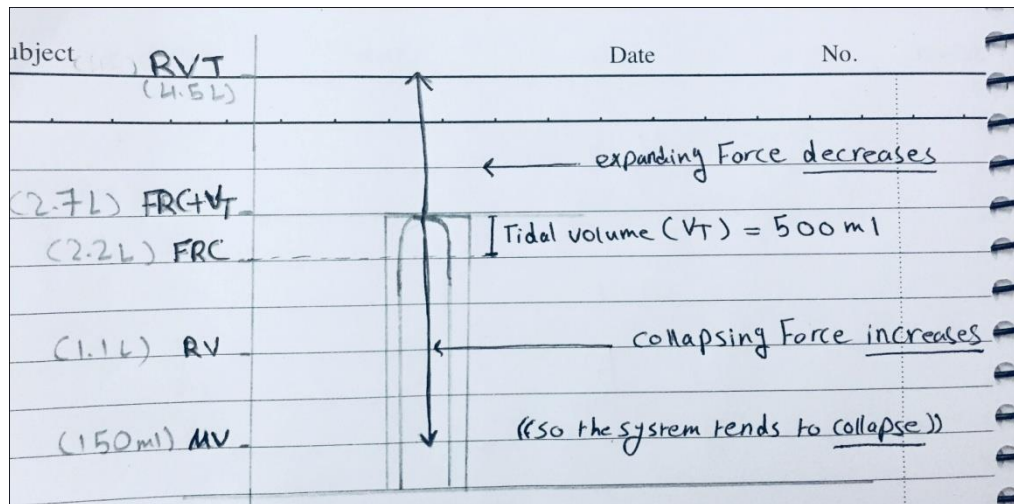 ubject Date No.
RVT
(4.5L)
← expanding Force decreases
(2.7L) FRC+VT
Tidal volume (VT) = 500ml
(2.2L) FRC
(1.1L) RV
← collapsing Force increases
(150ml) MV
((so the system tends to collapse))